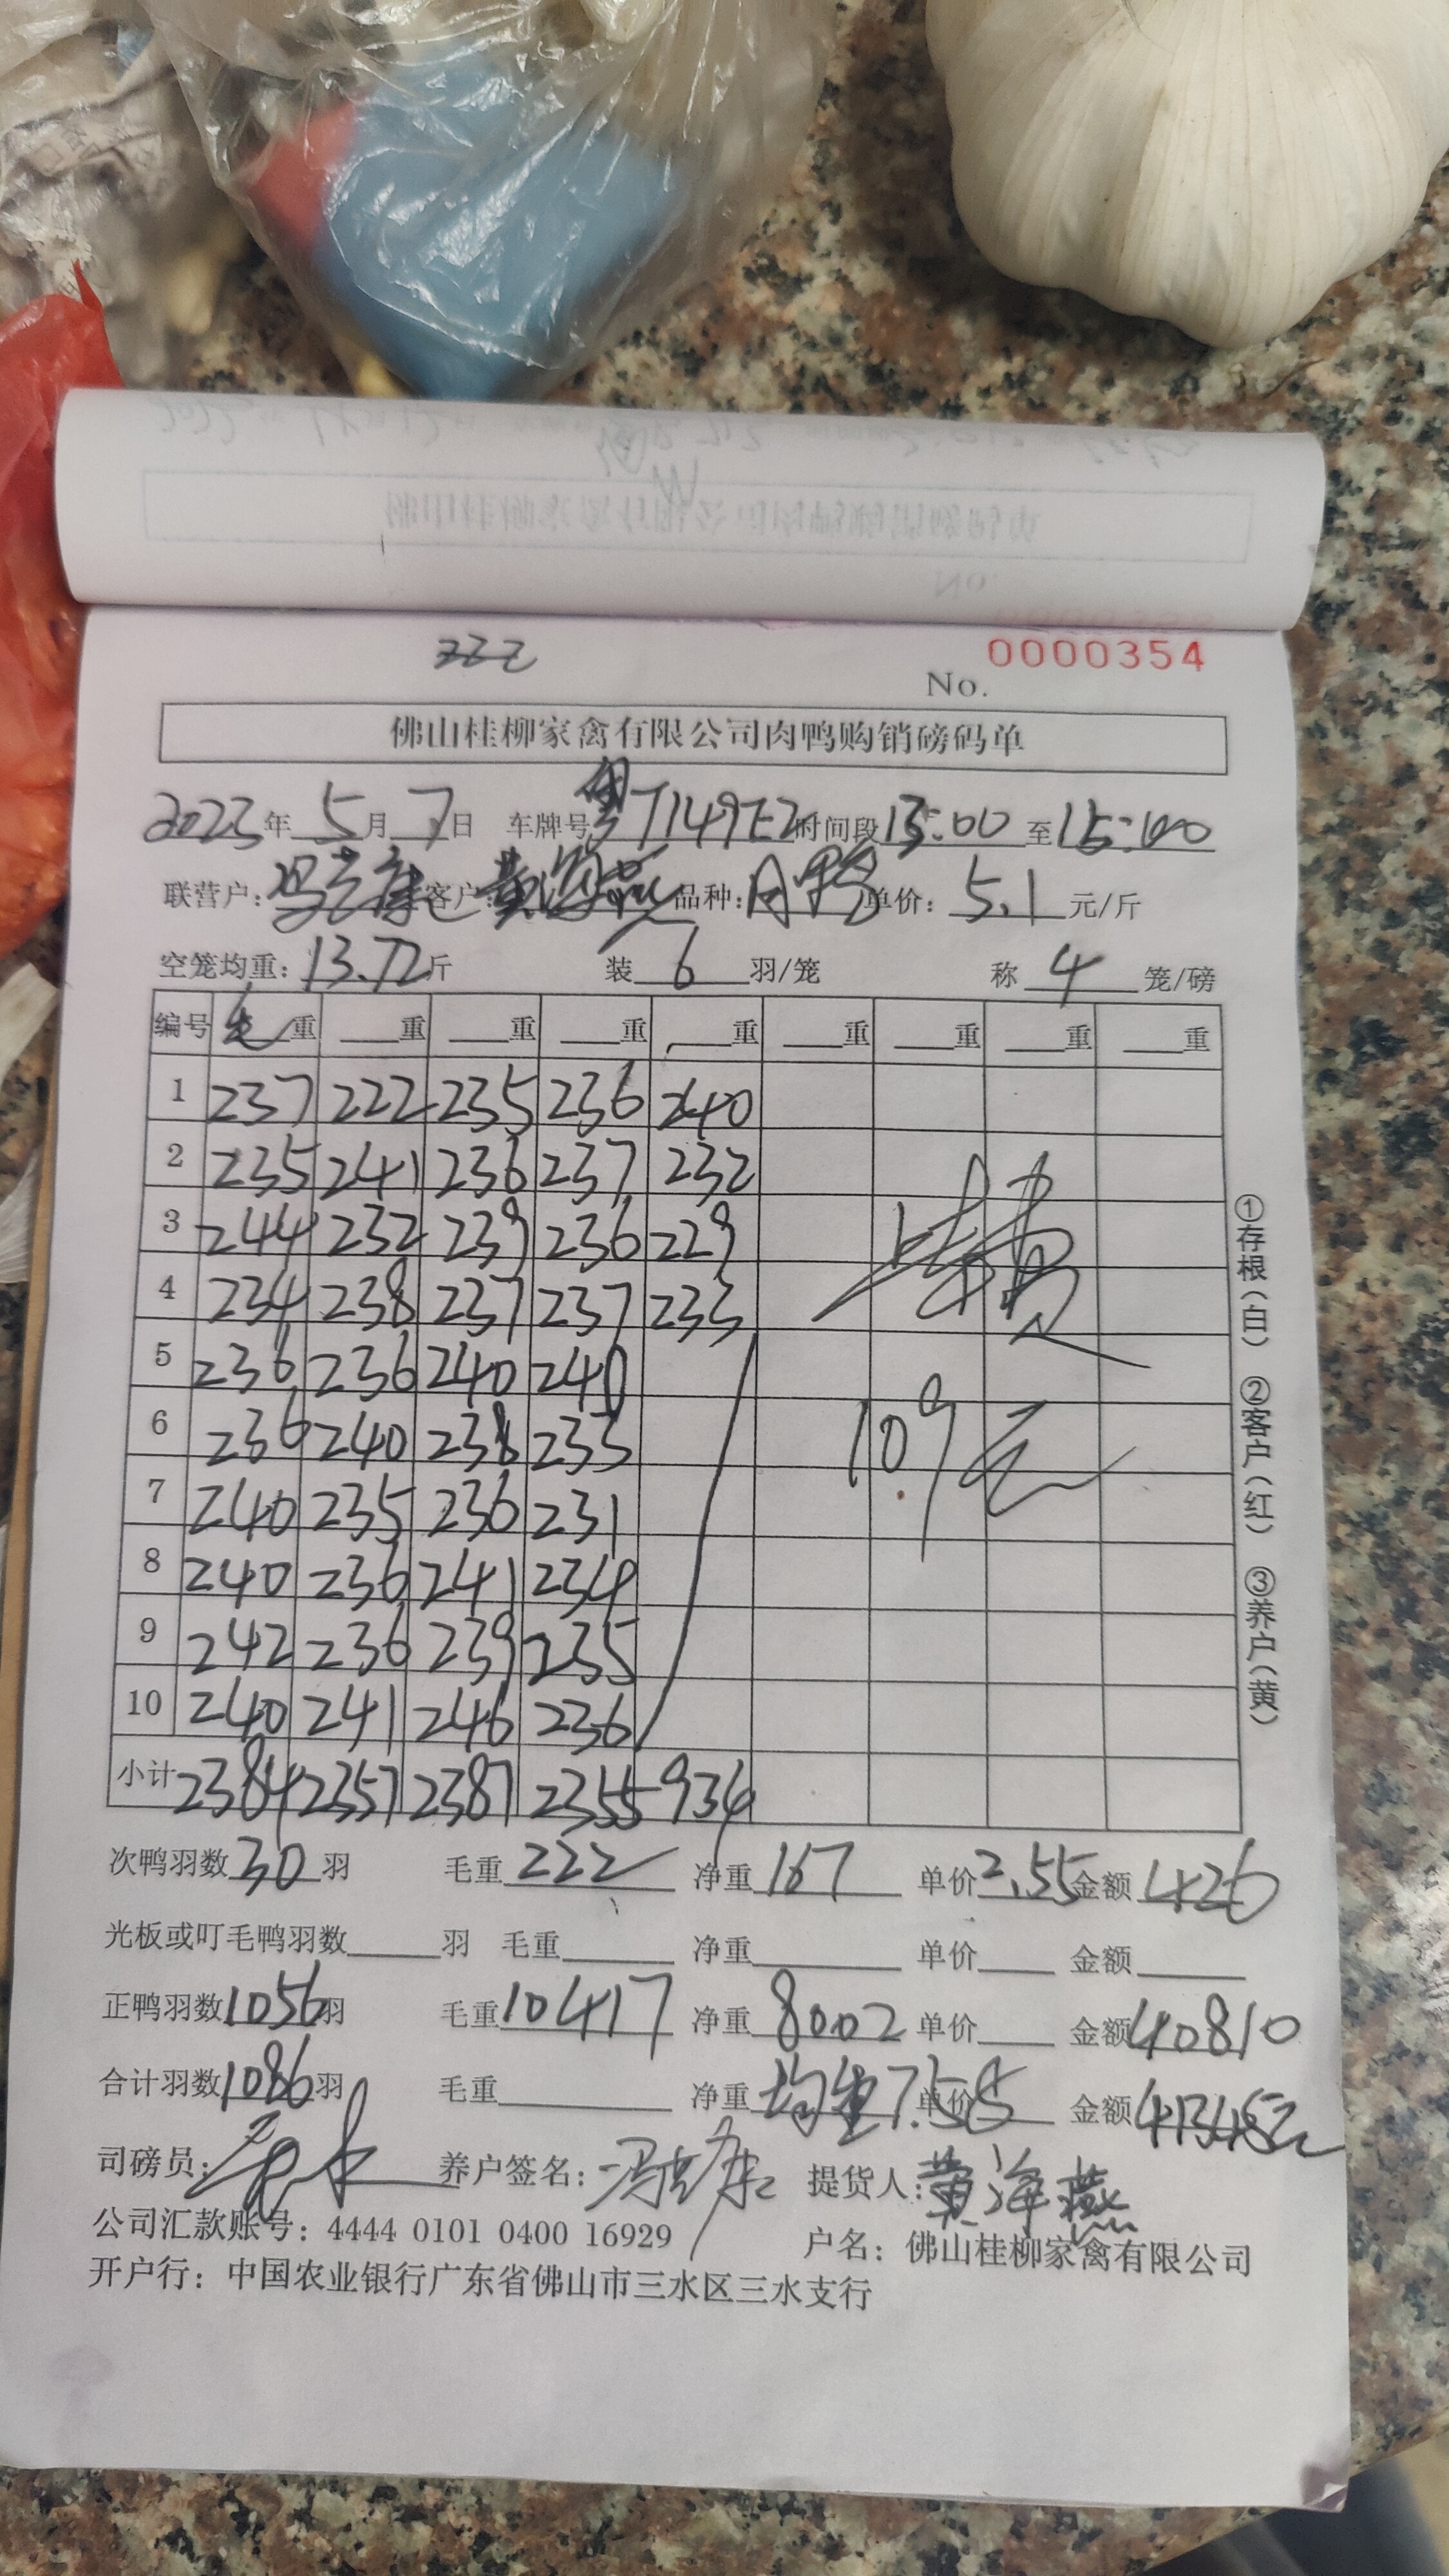 222
0000354
No.
佛山桂柳家禽有限公司肉鸭购销磅码单
2023年 5月 7日 车牌号 粤T149E2 时间段 13:00 至 15:00
联营户: 冯志康 客户: 黄海燕 品种: 月鸭 单价: 5.1 元/斤
空笼均重: 13.72斤 装 6 羽/笼 称 4 笼/磅
编号 毛重 重 重 重 重 重 重 重 重
1 237 222 235 236 240
2 235 241 236 237 232
3 244 232 239 236 229
4 234 238 237 237 233
5 236 236 240 240
6 236 240 238 233
7 240 235 236 231
8 240 236 241 234
9 242 236 239 235
10 240 241 246 236
小计 2384 2357 2387 2355 934
109元
①存根(白) ②客户(红) ③养户(黄)
次鸭羽数 30 羽 毛重 222 净重 167 单价 2.55 金额 426
光板或叮毛鸭羽数 羽 毛重 净重 单价 金额
正鸭羽数 1056 羽 毛重 10417 净重 8002 单价 金额 40810
合计羽数 1086 羽 毛重 净重 均重7.58 单价 金额
司磅员: 养户签名: 冯志康 提货人: 黄海燕
公司汇款账号: 4444 0101 0400 16929 户名: 佛山桂柳家禽有限公司
开户行: 中国农业银行广东省佛山市三水区三水支行